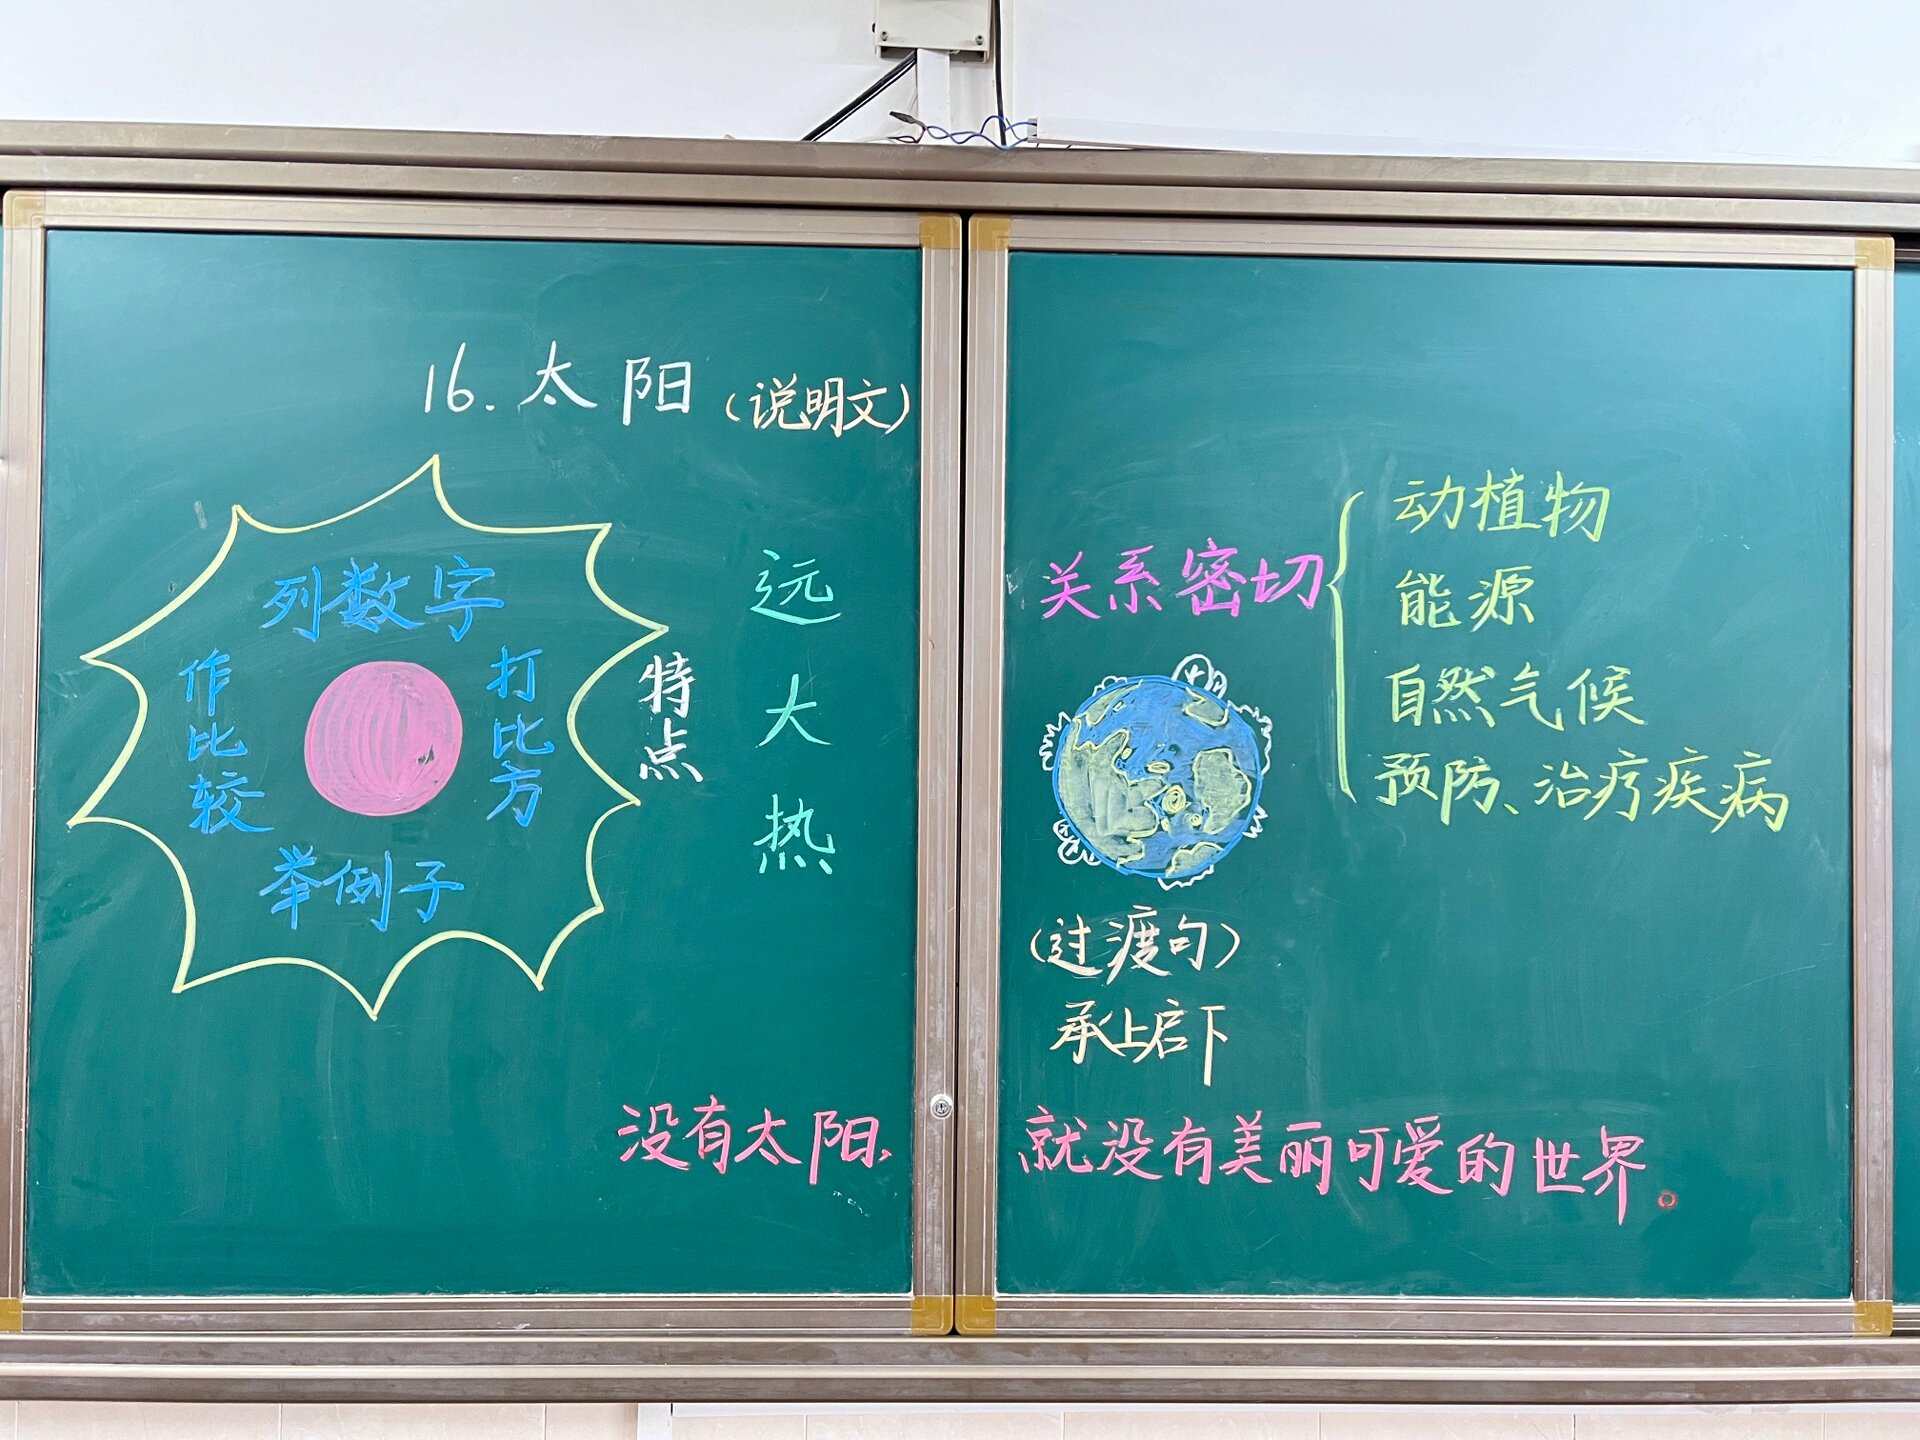 16.太阳(说明文)
列数字
作比较
打比方
举例子
特点
远
大
热
关系密切
动植物
能源
自然气候
预防、治疗疾病
(过渡句)
承上启下
没有太阳,就没有美丽可爱的世界。